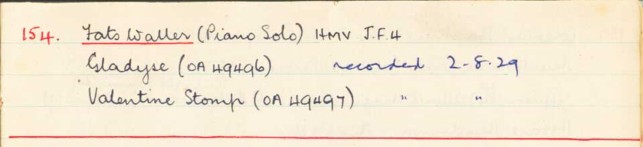 154. Fats Waller (Piano Solo) HMV J.F.4
Gladyse (OA 49496) recorded 2-8-29
Valentine Stomp (OA 49497) " "